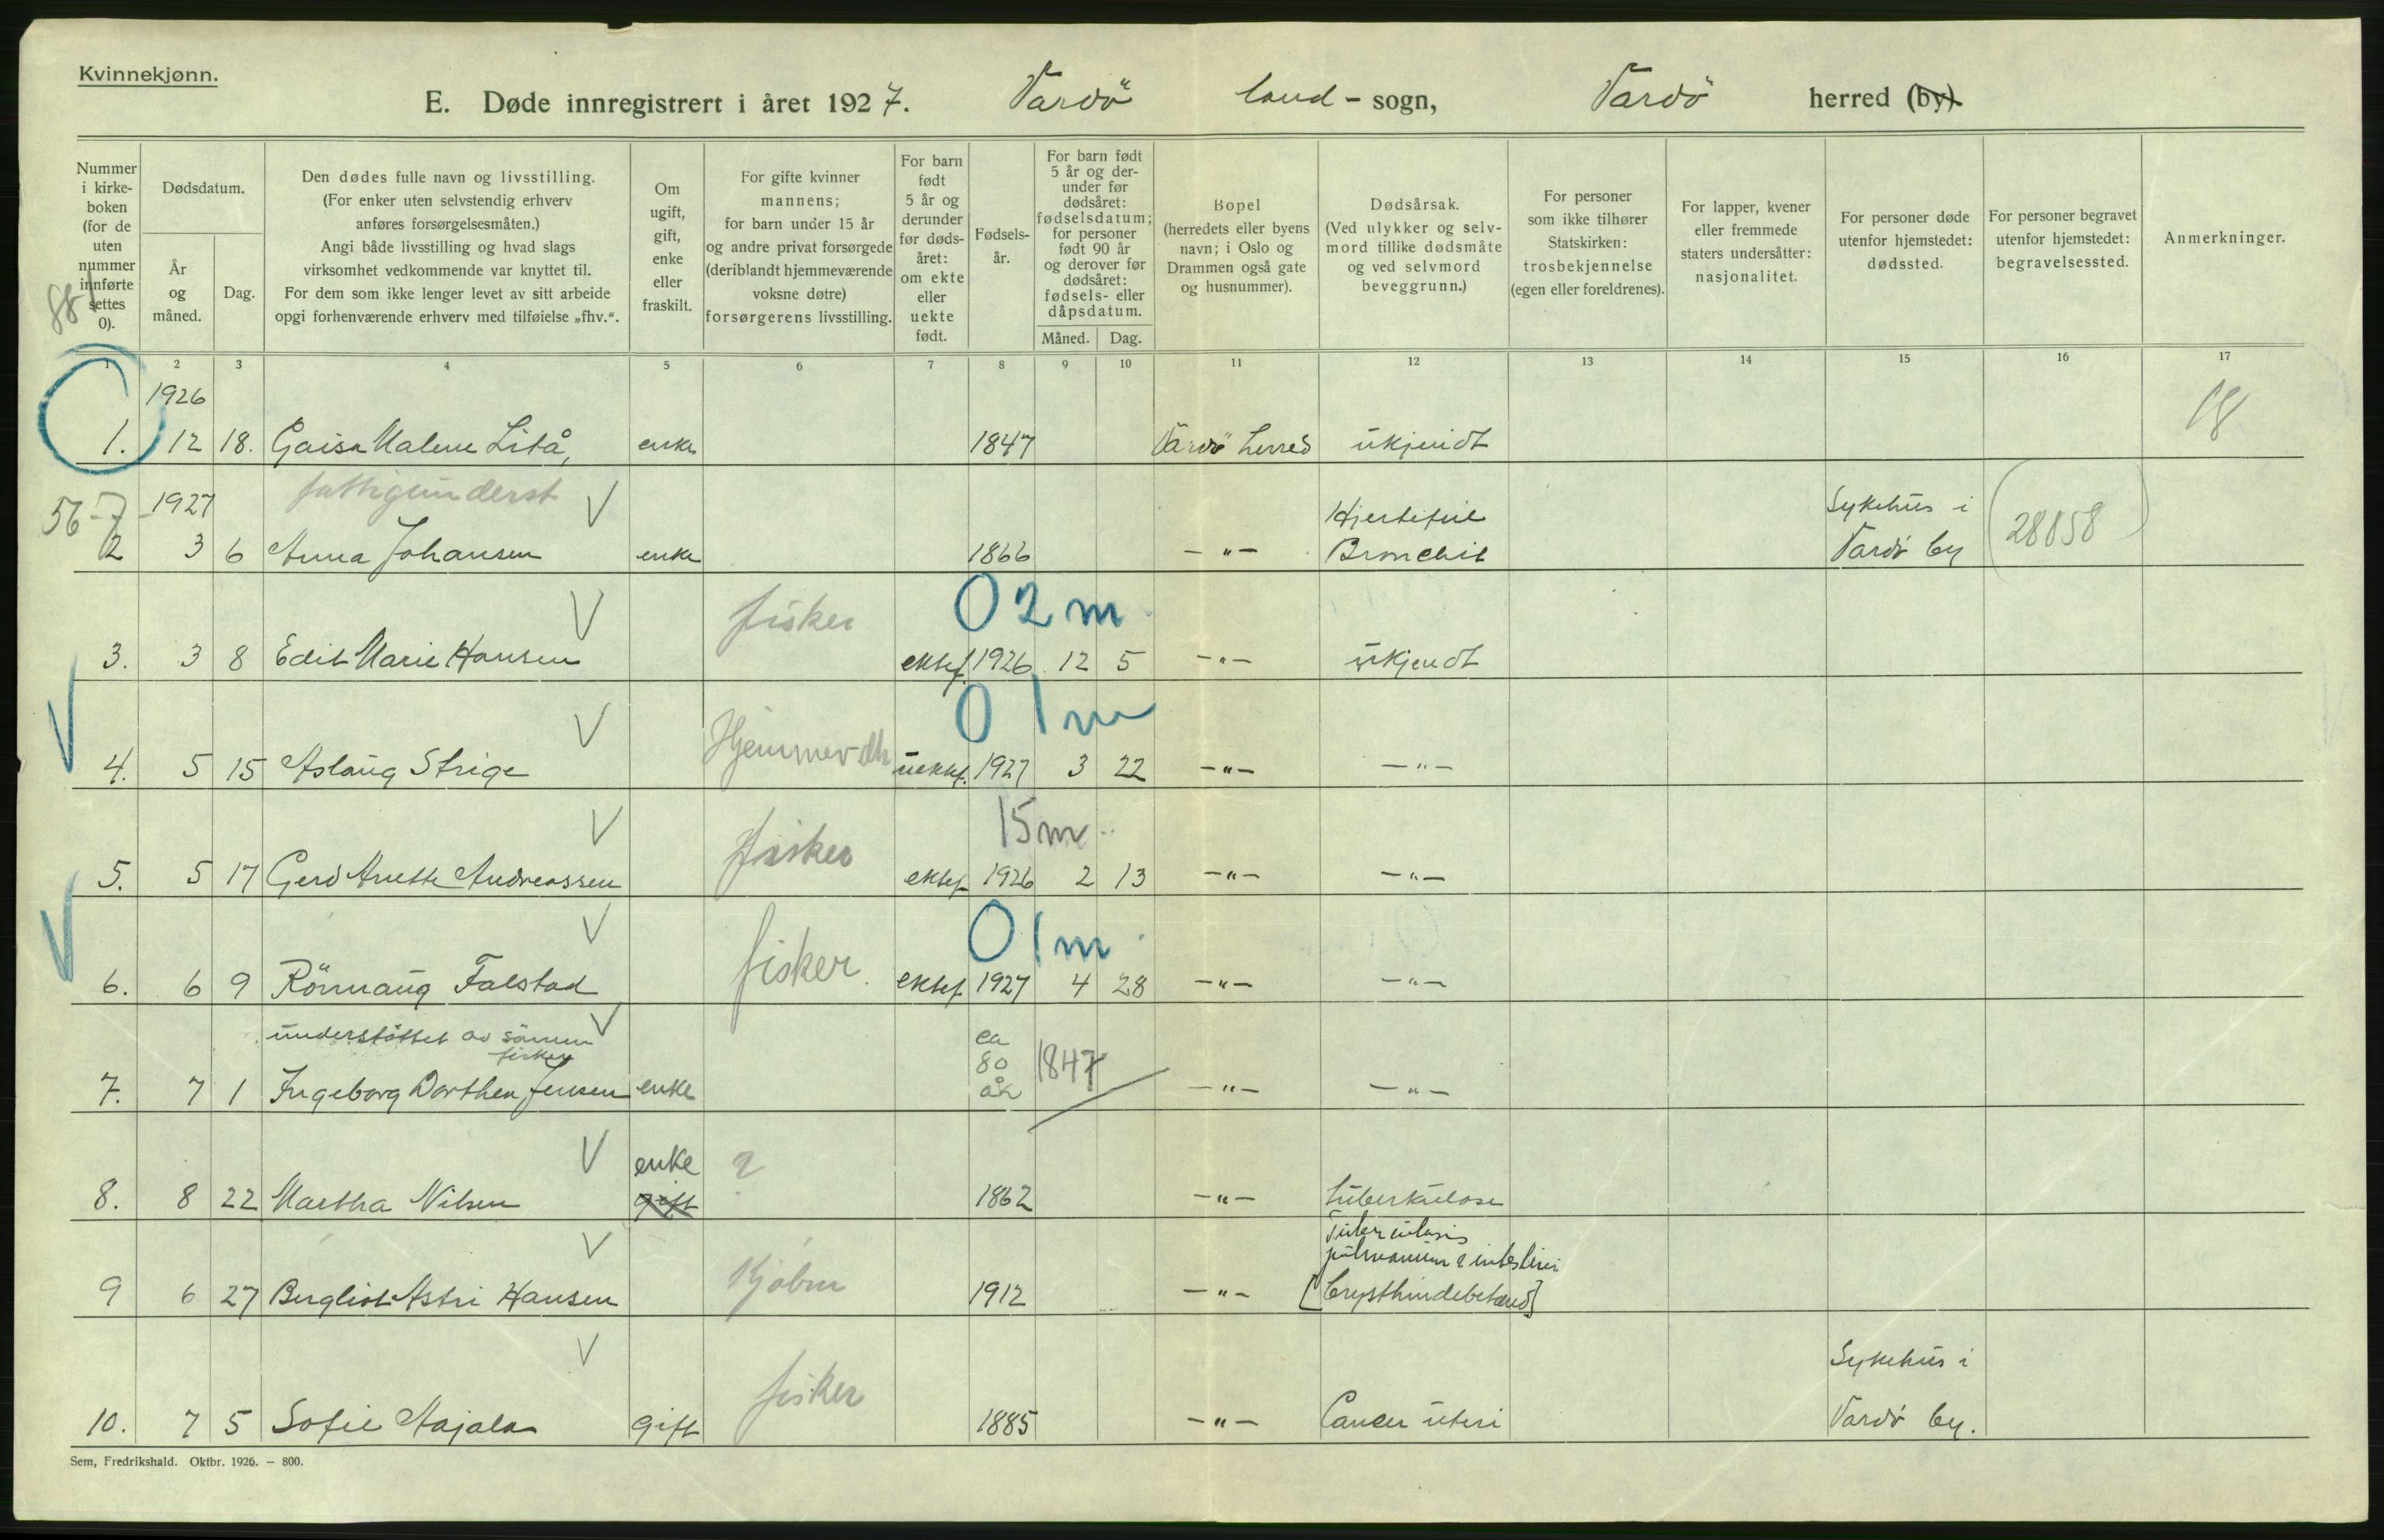 Kvinnekjønn.
E. Døde innregistrert i året 1927. Vardö land - sogn, Vardö herred (by)
Nummer i kirke- boken (for de uten nummer innførte settes 0).
Dødsdatum.
År og måned.
Dag.
Den dødes fulle navn og livsstilling.
(For enker uten selvstendig erhverv
anføres forsørgelsesmåten.)
Angi både livsstilling og hvad slags
virksomhet vedkommende var knyttet til.
For dem som ikke lenger levet av sitt arbeide
opgi forhenværende erhverv med tilføielse „fhv.“.
Om ugift, gift, enke eller fraskilt.
For gifte kvinner
mannens;
for barn under 15 år
og andre privat forsørgede
(deriblandt hjemmeværende
voksne døtre)
forsørgerens livsstilling.
For barn født 5 år og derunder før døds- året: om ekte eller uekte født.
Fødsels- år.
For barn født 5 år og der- under før dødsåret: fødselsdatum; for personer født 90 år og derover før dødsåret: fødsels- eller dåpsdatum.
Måned. Dag.
Bopel
(herredets eller byens
navn; i Oslo og
Drammen også gate
og husnummer).
Dødsårsak.
(Ved ulykker og selv-
mord tillike dødsmåte
og ved selvmord
beveggrunn.)
For personer
som ikke tilhører
Statskirken:
trosbekjennelse
(egen eller foreldrenes).
For lapper, kvener
eller fremmede
staters undersåtter:
nasjonalitet.
For personer døde
utenfor hjemstedet:
dødssted.
For personer begravet
utenfor hjemstedet:
begravelsessted.
Anmerkninger.
88
1 2 3 4 5 6 7 8 9 10 11 12 13 14 15 16 17
1926
1. 12 18. Gaisa Malene Litå, enke 1847 Vardö herred ukjendt 18
56-7 1927 fattigunderst V Hjertefeil Sykehus i
2 3 6 Anna Johansen enke 1866 -"- Bronchit Vardö by 28858
V fisker 0 2 m
3. 3 8 Edit Marie Hansen ektef. 1926 12 5 -"- ukjendt
V Hjemmev dtr 0 1 m
4. 5 15 Aslaug Strige uektef. 1927 3 22 -"- -"-
V fisker 15 m
5. 5 17 Gerd Anette Andreassen ektef 1926 2 13 -"- -"-
V fisker 0 1 m
6. 6 9 Rönnaug Falstad ektef 1927 4 28 -"- -"-
understöttet av sönnen V ca
fisker 80 1847
7. 7 1 Ingeborg Dorthea Jensen enke år -"- -"-
V enke ?
8. 8 22 Martha Nilsen gift 1862 -"- tuberkulose
V Tuberculosis
pulmonum & intestini
9 6 27 Bergliot Astri Hansen Kjöbm 1912 -"- [brysthindebetænd]
V fisker Sykehus i
10. 7 5 Sofie Aajala gift 1885 -"- Cancer uteri Vardö by.
Sem, Fredrikshald. Oktbr. 1926. – 800.